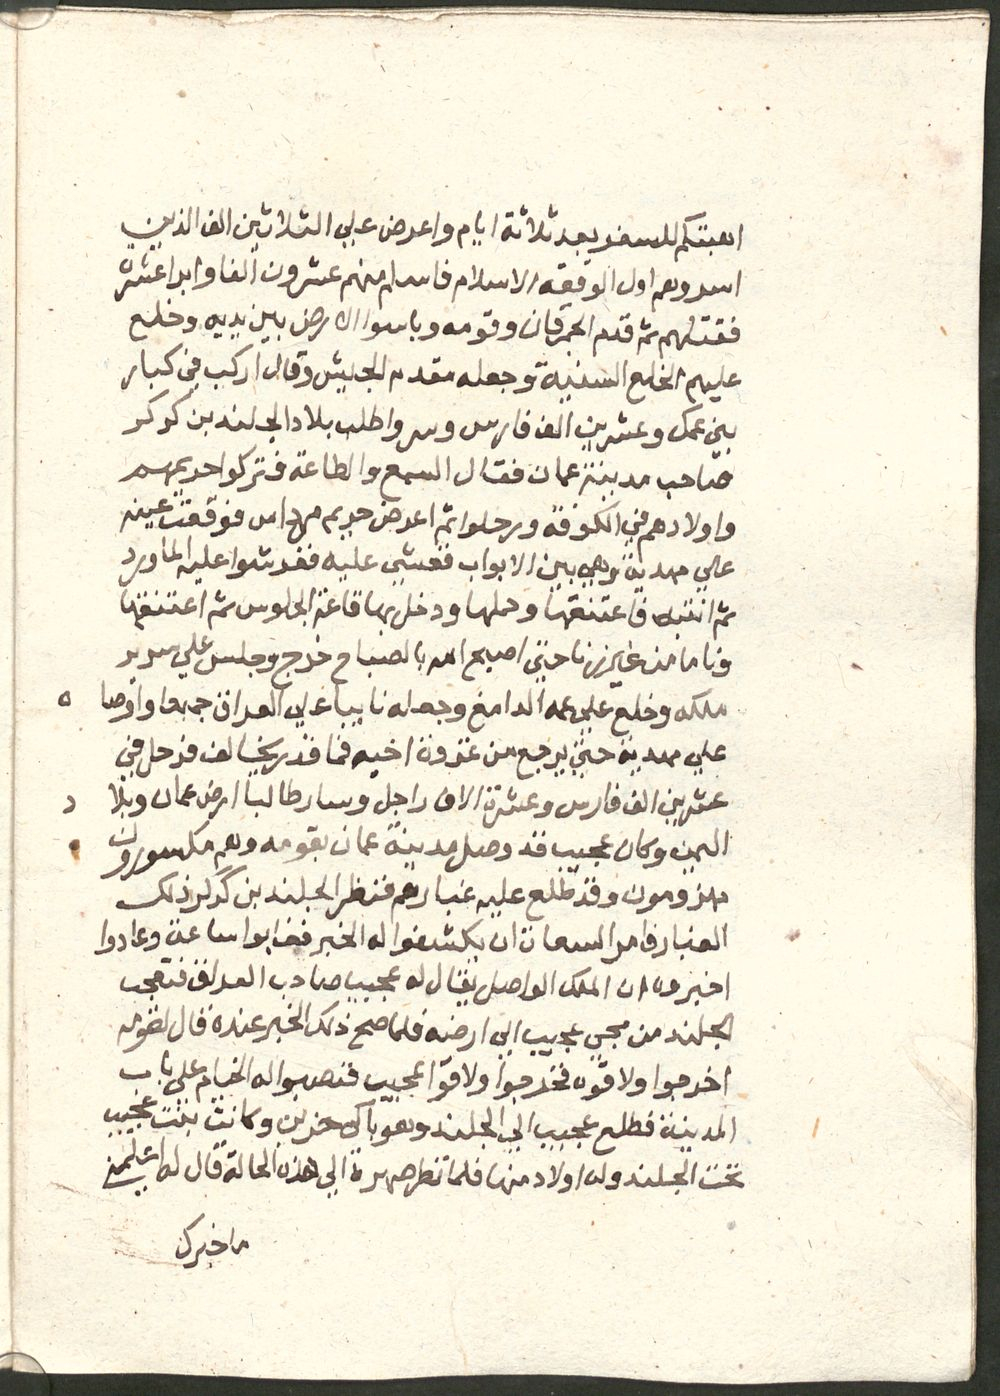 اهبتكم للسفر بعد ثلاثة ايام واعرض علي الثلاثين الف الذين
اسروهم اول الوقعه الاسلام فاسلم منهم عشرون الفا وابا عشرة
فقتلهم ثم قدم الجمرقان وقومه وباسوا الارض بين يديه وخلع
عليهم الخلع السنية وجعله مقدم الجيش وقال اركب في كبار
بني عمك وعشرين الف فارس وسر واطلب بلاد الجلند بن كركر
صاحب مدينة عمان فقال السمع والطاعة فتركوا حريمهم
واولادهم في الكوفة ورحلوا ثم اعرض حريم مرداس فوقعت عينه
علي مهدية وهي بين الابواب فغشي عليه ففرشوا عليه الماورد
ثم انتبه فاعتنقها وحملها ودخل بها قاعة الجلوس ثم اعتنقها
وناما من غير زنا حتي اصبح الله بالصباح خرج وجلس علي سرير
ملكه وخلع علي عمه الدامغ وجعله نايبا علي العراق جميعا واوصاه
علي مهدية حتي يرجع من غزوة اخيه فما قدر يخالف فرحل في
عشرين الف فارس وعشرة الاف راجل وسار طالبا ارض عمان وبلاد
اليمن وكان عجيب قد وصل مدينة عمان بقومه وهم مكسورون
مهزومون وقد طلع عليه غبارهم فنظر الجلند بن كركر ذلك
الغبار فامر السعاة ان يكشفوا له الخبر فغابوا ساعة وعادوا
اخبروه ان الملك الواصل يقال له عجيب صاحب العراق فتعجب
الجلند من مجي عجيب الي ارضه فلما صح ذلك الخبر عنده قال لقومه
اخرجوا ولاقوه فخرجوا ولاقوا عجيب فنصبوا له الخيام علي باب
المدينة فطلع عجيب الي الجلند وهو باكي حزين وكانت بنت عجيب
تحت الجلند وله اولاد منها فلما نظر صهرة الي هذه الحالة قال له اعلمني
ما خبرك